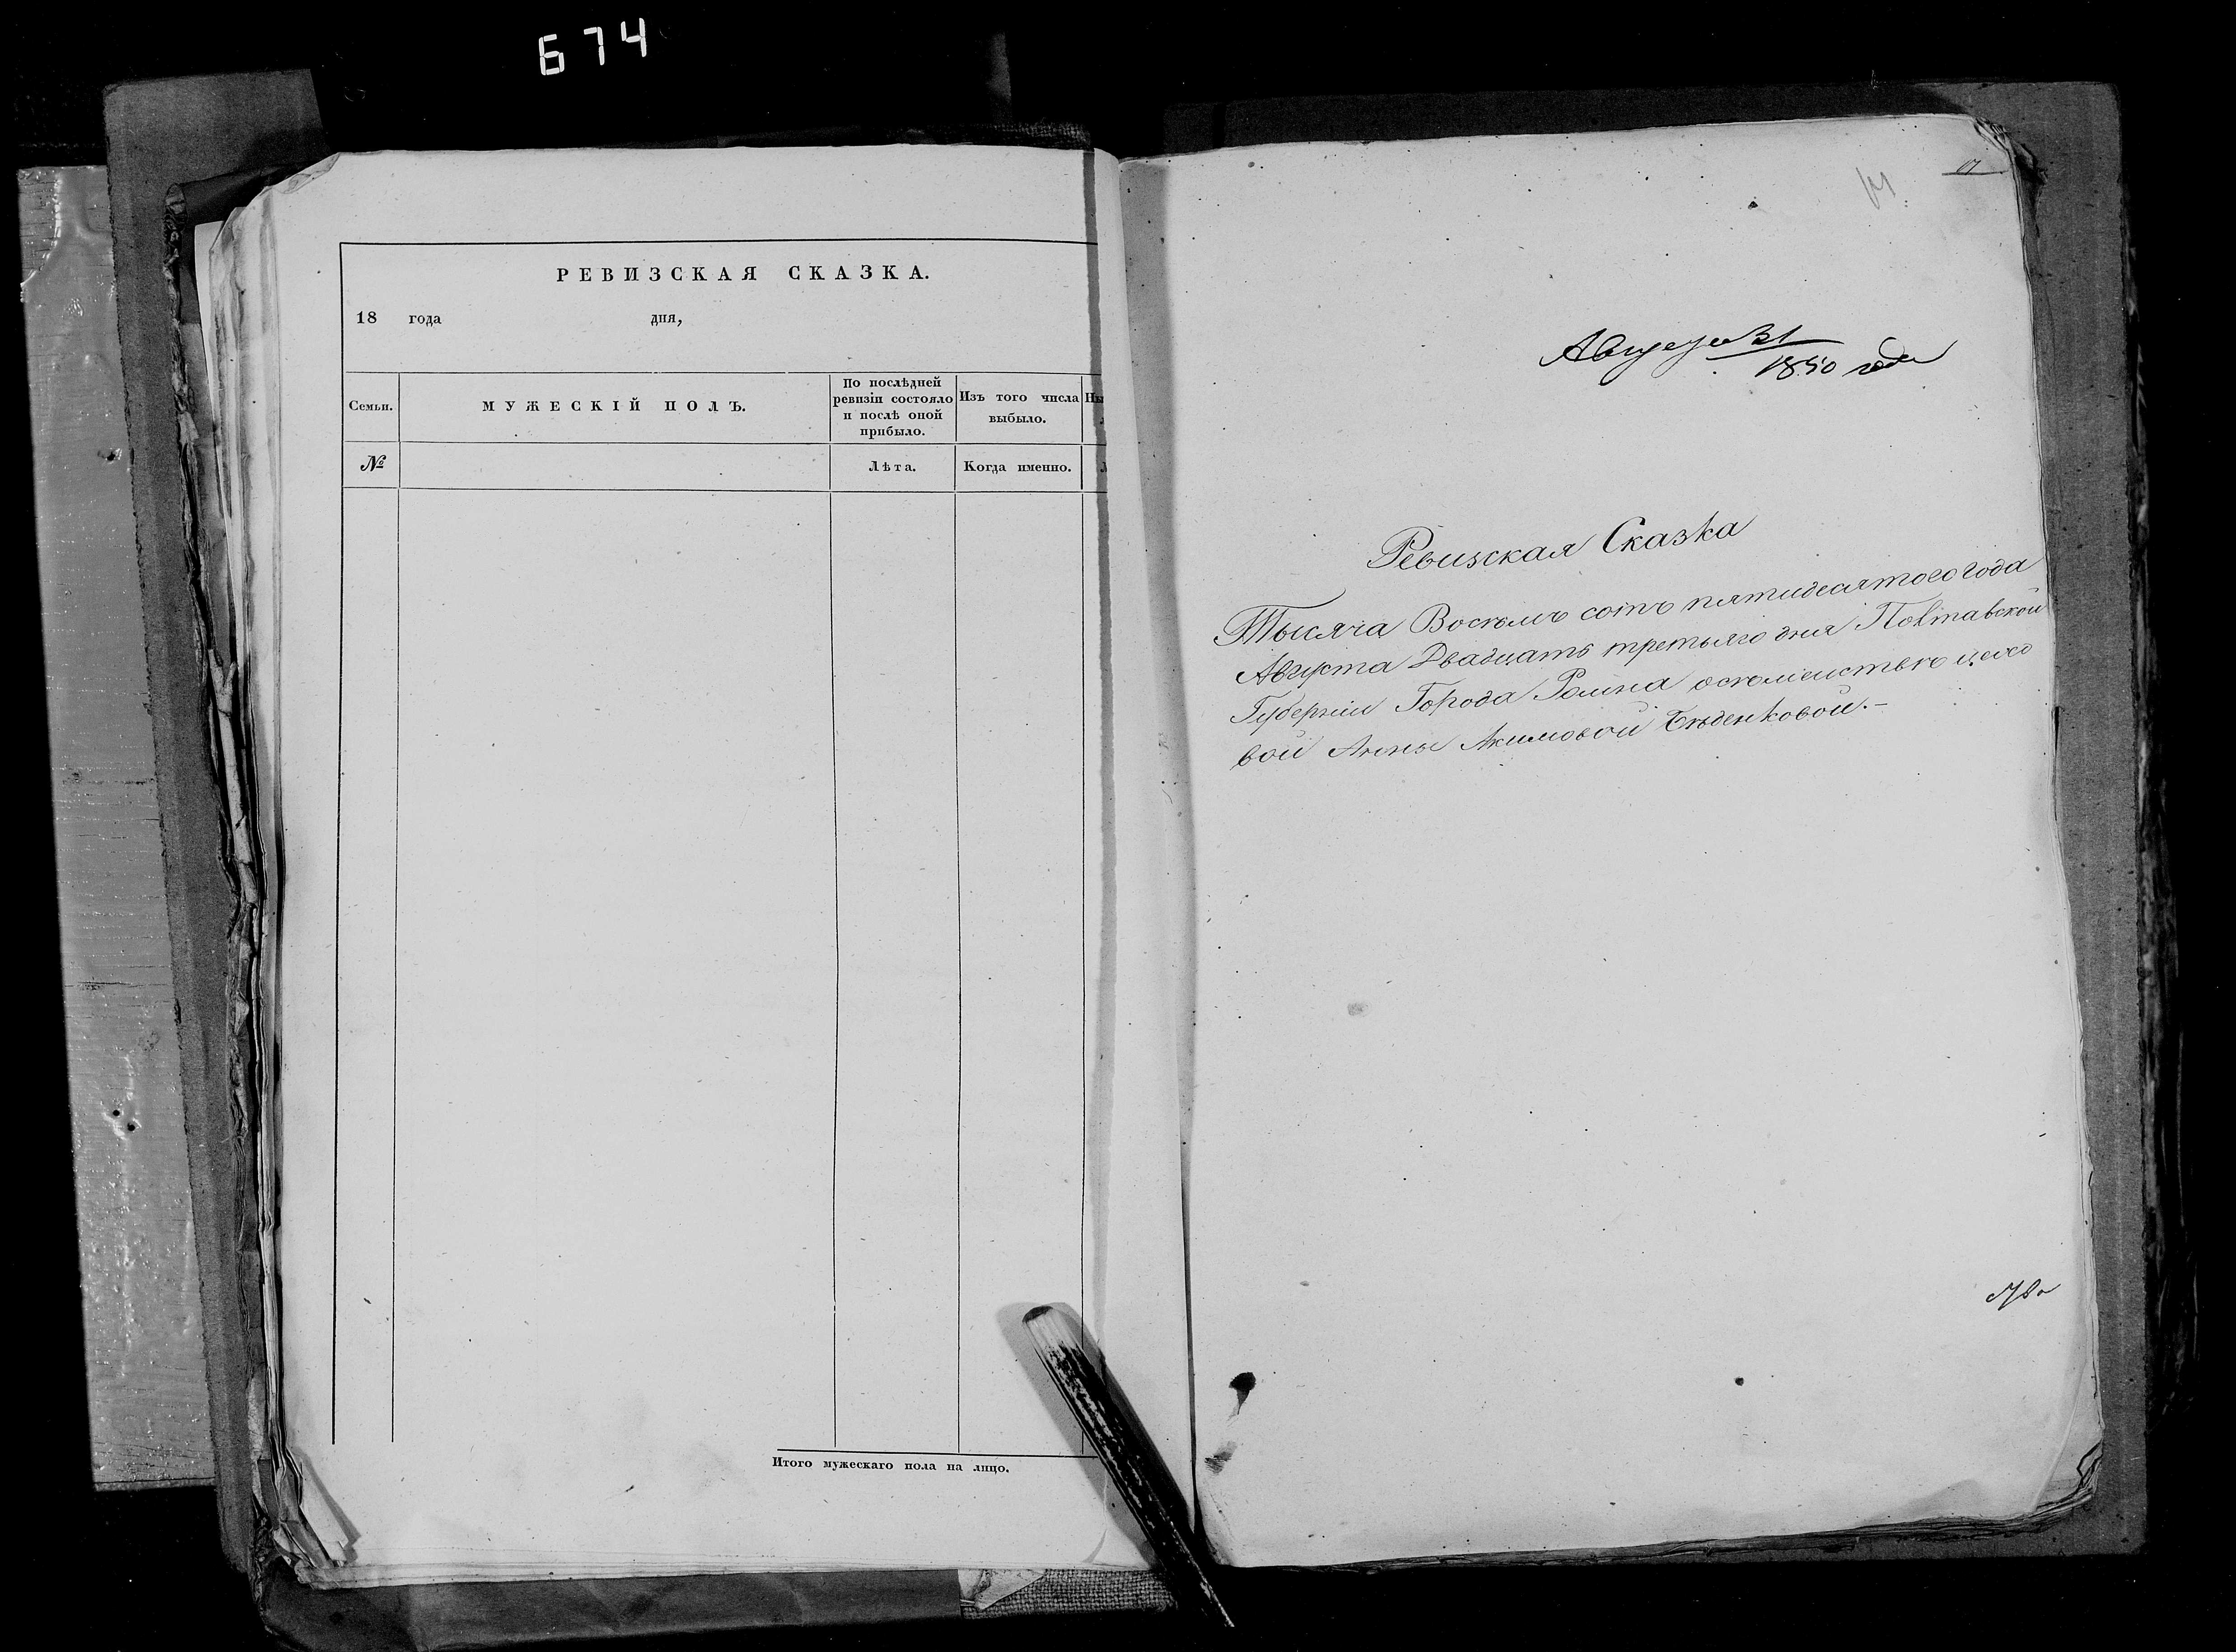 674
РЕВИЗСКАЯ СКАЗКА.
18 года дня,
Семьи.
МУЖЕСКІЙ ПОЛЪ.
По послѣдней
ревизіи состояло
и послѣ оной
прибыло.
Изъ того числа
выбыло.
№
Лѣта.
Когда именно.
Итого мужескаго пола на лицо.
Августа 31
1850 года
Ревизская Сказка
Тысяча Восемь сотъ пятидесятого года
Августа Двадцать третьяго дня Полтавской
Губерніи Города Ромна
вой Анны Акимовой Бѣденковой.-